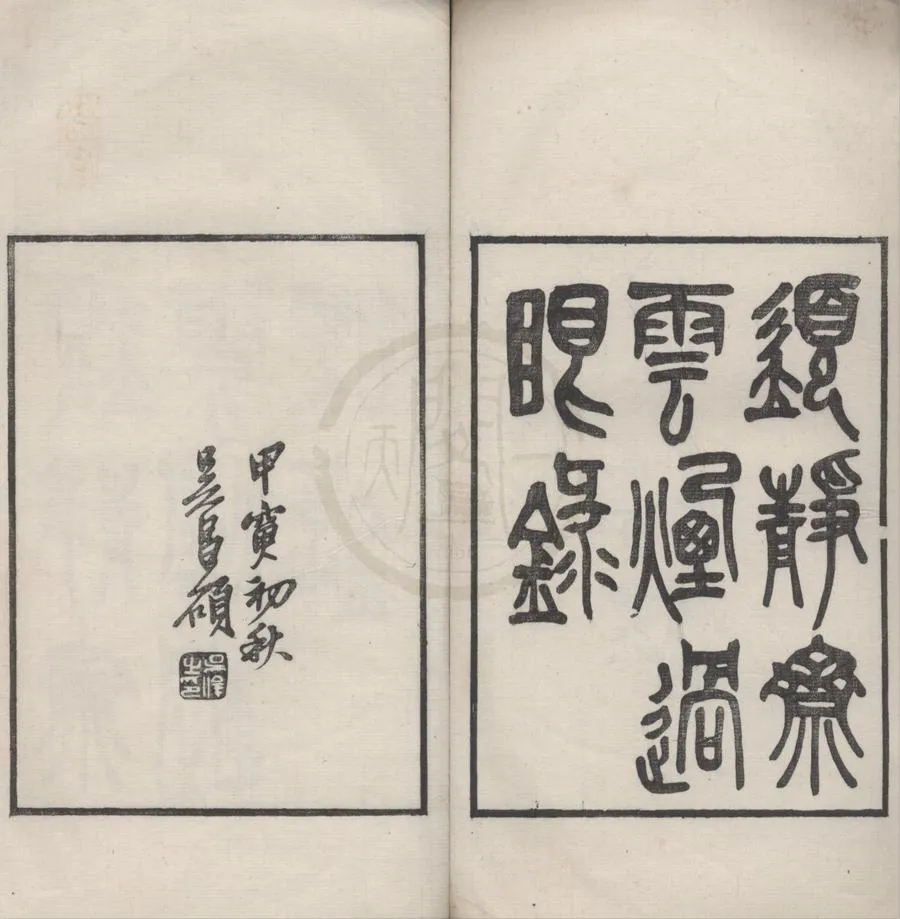 顉靜齋
雲煙過
眼錄
甲寅初秋
吳昌碩
吳俊之印